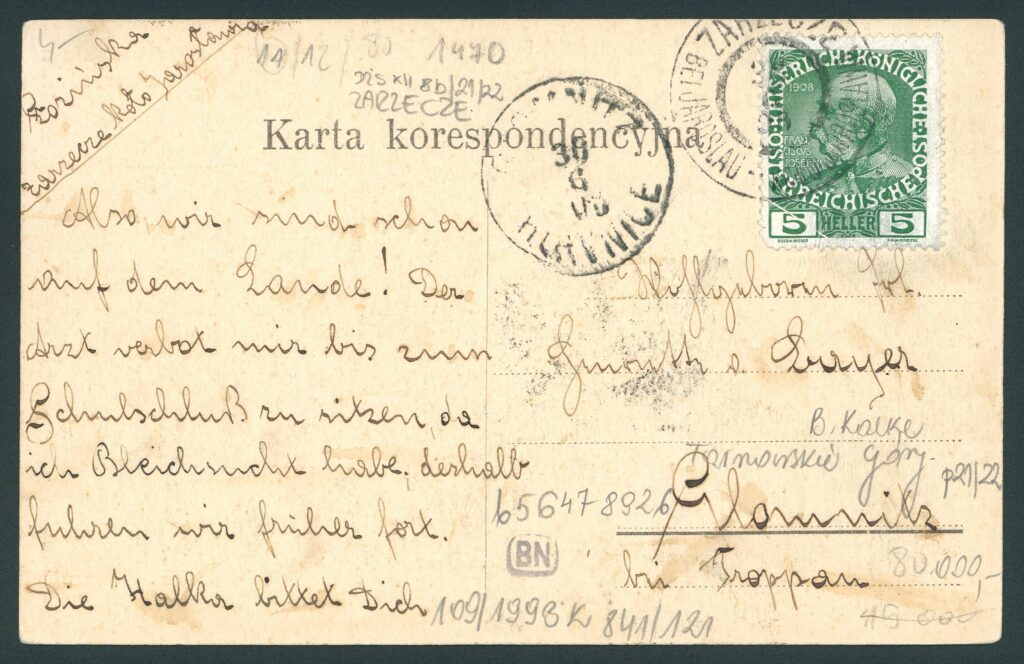 4-
Zarzecze koło Jarosławia
11/12/ 80 1470
XII 8b/21/22
ZARZECZE
Karta korespondencyjna
30
6
09
HLAVNICE
ZARZECZE
BEI JAROSLAU
KAISERLICHE KÖNIGLICHE
ÖSTERREICHISCHE POST
1908
FRAN
CISCUS
JOSEPH
5 HELLER 5
Also wir sind schon
auf dem Lande! Der
Arzt verbot mir bis zum
Schulschluß zu sitzen, da
ich Bleichsucht habe, deshalb
fuhren wir früher fort.
Die Halka bittet Dich
Wohlgeboren Frl.
v. Bayer
B. Kolke
Góry
p21/22
b56478926
Glomnitz
bei Troppau
BN
80.000,-
109/1998 K 841/121